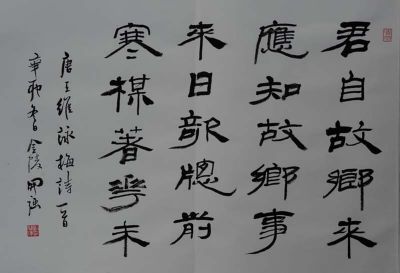 君自故鄉來
應知故鄉事
來日牕前
寒楳著花未
唐王維詠梅詩一首
辛卯冬金陵